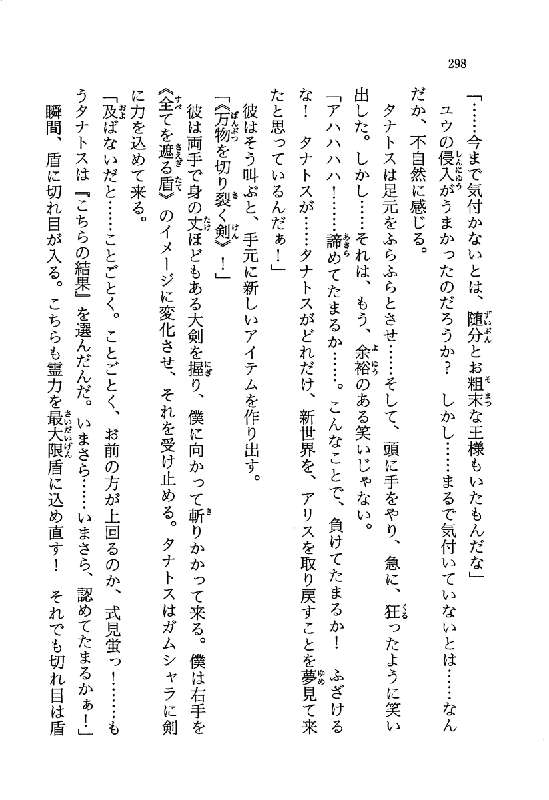 298
「……今まで気付かないとは、随分とお粗末な王様もいたもんだな」
ユウの侵入がうまかったのだろうか？　しかし……まるで気付いていないとは……なん
だか、不自然に感じる。
タナトスは足元をふらふらとさせ……そして、頭に手をやり、急に、狂ったように笑い
出した。しかし……それは、もう、余裕のある笑いじゃない。
「アハハハハ！……諦めてたまるか……。こんなことで、負けてたまるか！　ふざける
な！　タナトスが……タナトスがどれだけ、新世界を、アリスを取り戻すことを夢見て来
たと思っているんだぁ！」
彼はそう叫ぶと、手元に新しいアイテムを作り出す。
「《万物を切り裂く剣》！」
彼は両手で身の丈ほどもある大剣を握り、僕に向かって斬りかかって来る。僕は右手を
《全てを遮る盾》のイメージに変化させ、それを受け止める。タナトスはガムシャラに剣
に力を込めて来る。
「及ばないだと……ことごとく。ことごとく、お前の方が上回るのか、式見蛍っ！……も
うタナトスは『こちらの結果』を選んだんだ。いまさら……いまさら、認めてたまるかぁ！」
瞬間、盾に切れ目が入る。こちらも霊力を最大限盾に込め直す！　それでも切れ目は盾